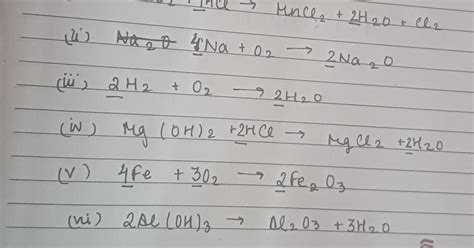 HCl → MnCl2 + 2H2O + Cl2
(ii) Na2O 4Na + O2 → 2Na2O
(iii) 2H2 + O2 → 2H2O
(iv) Mg(OH)2 + 2HCl → MgCl2 + 2H2O
(v) 4Fe + 3O2 → 2Fe2O3
(vi) 2Al(OH)3 → Al2O3 + 3H2O